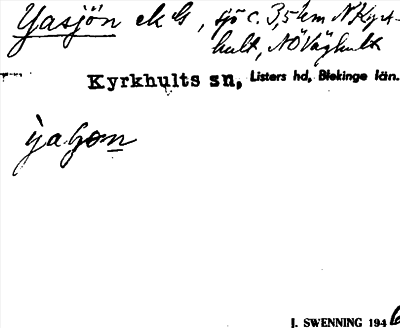 Yasjön ek G, sjö c. 3,5 km N Kyrk-
hult, NÖ Väghult
Kyrkhults sn, Listers hd, Blekinge län.
J. SWENNING 1946